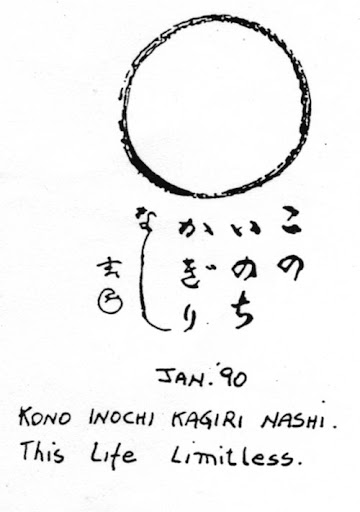 この
いのち
かぎり
なし
JAN. '90
KONO INOCHI KAGIRI NASHI.
This Life Limitless.